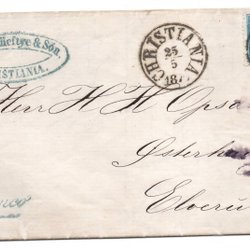 & Són,
STIANIA.
CHRISTIANIA
25
5
Herr H H Opsa
Østerha
Elveru